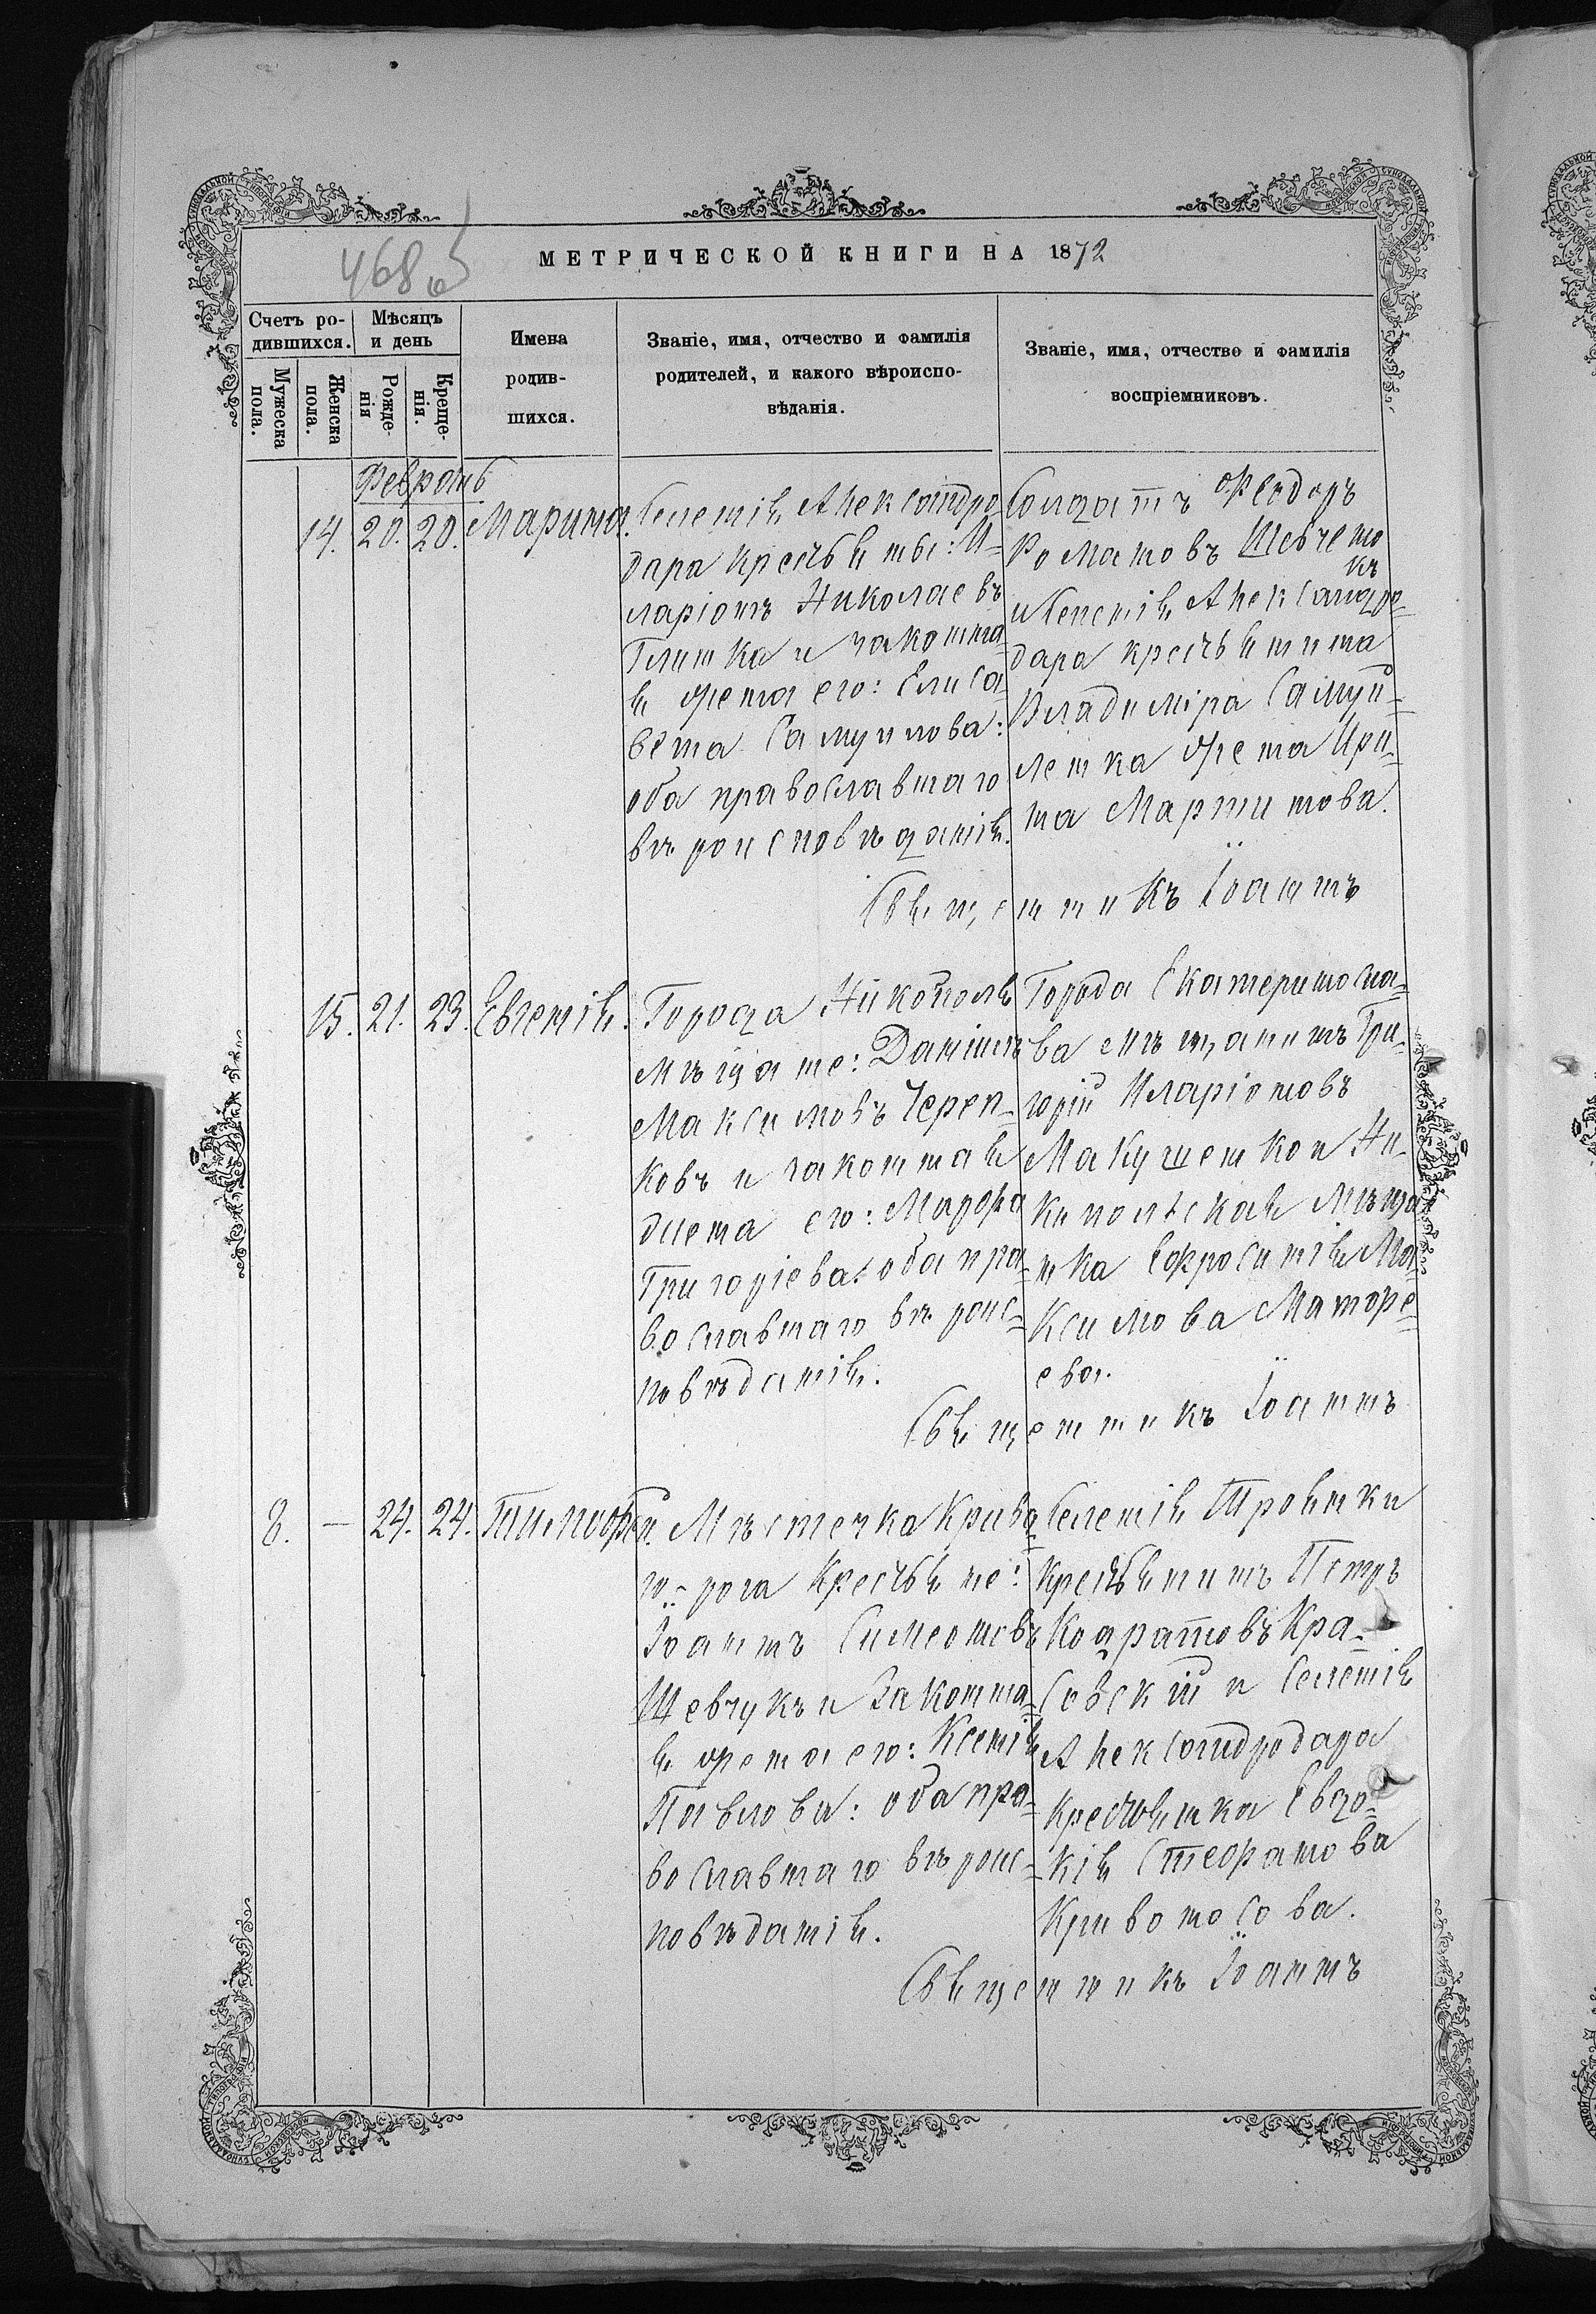 468 об
МЕТРИЧЕСКОЙ КНИГИ НА 1872
Счетъ ро-
дившихся.
Мужеска пола.
Женска пола.
Мѣсяцъ
и день
Рожде-
нія
Креще-
нія.
Имена
родив-
шихся.
Званіе, имя, отчество и фамилія
родителей, и какого вѣроиспо-
вѣданія.
Званіе, имя, отчество и фамилія
воспріемниковъ.
Февраль
14. 20. 20. Марина.
Селенія Александро
дара крестьяны: И-
ларіонъ Николаевъ
Глинка и законна-
я жена его: Елиса-
вета Самуилова:
оба православнаго
вѣроисповѣданія.
Солдатъ Ѳеодоръ
Романовъ Шевчено
къ
и Селенія Александро-
дара крестьянина
Владиміра Самуй-
ленка жена Ири-
на Мартинова.
Священникъ Іоаннъ
15. 21. 23. Евгенія.
Города Никополя
мѣщане: Даніилъ
Максимовъ Череп-
ковъ и законная
жена его: Марфа
Григоріева: оба пра-
вославнаго вѣроис-
повѣданія.
Города Екатериносла-
ва мѣщанинъ Гри-
горій Иларіоновъ
Макушенко и Ни-
кипольская мѣща
нка Ефросинія Ма-
ксимова Маторе-
ева.
Священникъ Іоаннъ
8. — 24. 24. Тимофей.
Мѣстечка Криво-
го-рога крестьяне:
Іоаннъ Симеоновъ
Шевчукъ и Законна-
я жена его: Ксенія
Павлова: оба пра-
вославнаго вѣроис-
повѣданія.
Селенія Трояшки
крестьянинъ Петръ
Кодратовъ Кра-
совскій и Селенія
Александродара
крестьянка Евдо-
кія Стефанова
Кривоносова.
Священникъ Іоаннъ